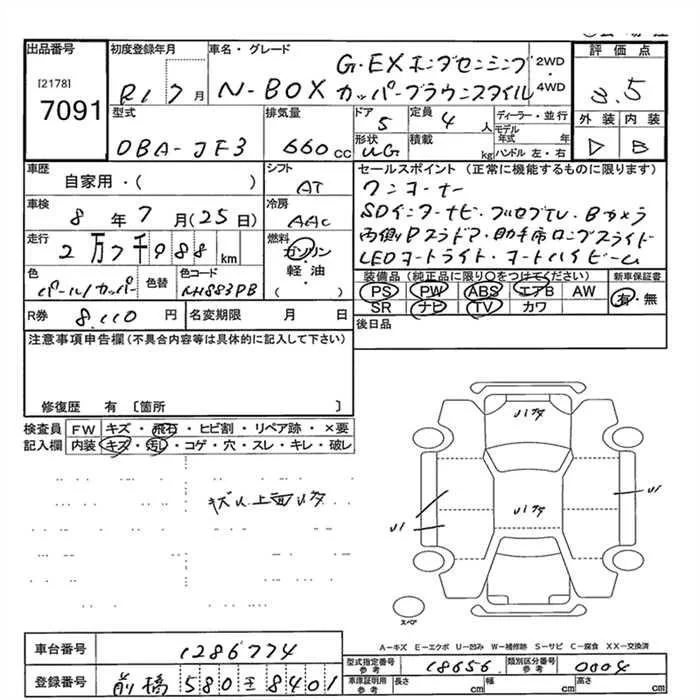 出品番号 初度登録年月 車名・グレード 評価点
[2178]
7091
R1 7月 N-BOX G・EX ホンダセンシング カッパーブラウンスタイル 2WD・4WD 3.5
型式 排気量 ドア 定員 ディーラー・並行 外装 内装
DBA-JF3 660cc 5 4人 モデル年式 年
形状 積載 kg ハンドル 左・右 B
車歴 シフト セールスポイント(正常に機能するものに限ります)
自家用・( ) AT ワンオーナー
車検 冷房 SDインターナビ・フルセグTV・Bカメラ
8年7月(25日) AAC 両側Pスライドア・助手席ロングスライド
走行 燃料 LEDオートライト・オートハイビーム
2万7千988km ガソリン・軽油( )
色 色替 色コード 装備品(純正品に限り○をつけてください) 新車保証書
パール/カッパー NH883PB PS PW ABS エアB AW 有・無
SR ナビ TV カワ
R券 8,110円 名変期限 月 日 後日品
注意事項申告欄(不具合内容等は具体的に記入して下さい)
修復歴 有 〔箇所 〕
検査員 FW キズ・飛石・ヒビ割・リペア跡・×要
記入欄 内装 キズ・汚レ・コゲ・穴・スレ・キレ・破レ
U1
U1
スペア
A-キズ E-エクボ U-凹み W-補修跡 S-サビ C-腐食 XX-交換済
車台番号 1286774
型式指定番号 参考 18656 類別区分番号 参考 0004
登録番号 前橋 580 8401
車庫証明用 参考 長さ cm 幅 cm 高さ cm